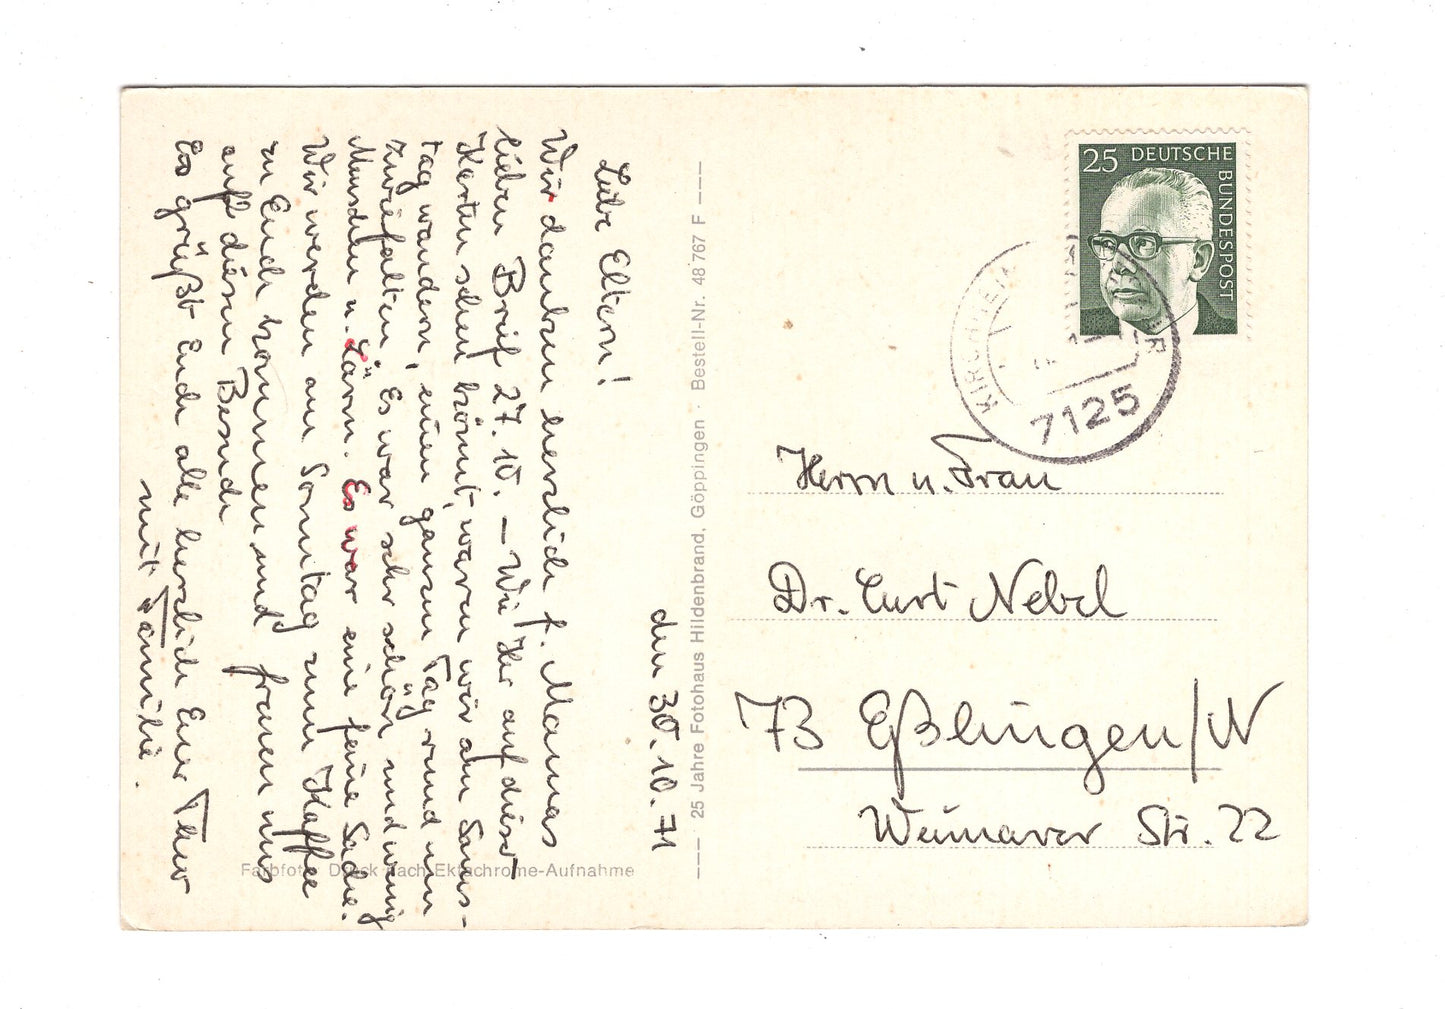 den 30.10.71
Liebe Eltern!
Wir danken herzlich f. Mamas
lieben Brief 27.10. – Wie Ihr auf dieser
Karten sehen könnt, waren wir am Sams-
tag wandern, einen ganzen Tag rund um
Zwiefalten. Es war sehr schön und wenig
Menschen u. Lärm. Es war eine feine Sache.
Wir werden am Sonntag zum Kaffee
zu Euch kommen und freuen uns
auf diesen Besuch
Es grüßt Euch alle herzlich Euer
mit Familie.
Farbfoto: Druck nach Ektachrome-Aufnahme
25 Jahre Fotohaus Hildenbrand, Göppingen · Bestell-Nr. 48 767 F
25 DEUTSCHE
BUNDESPOST
7125
Herrn u. Frau
Dr. Curt Nebel
73 Eßlingen/N
Weimarer Str. 22